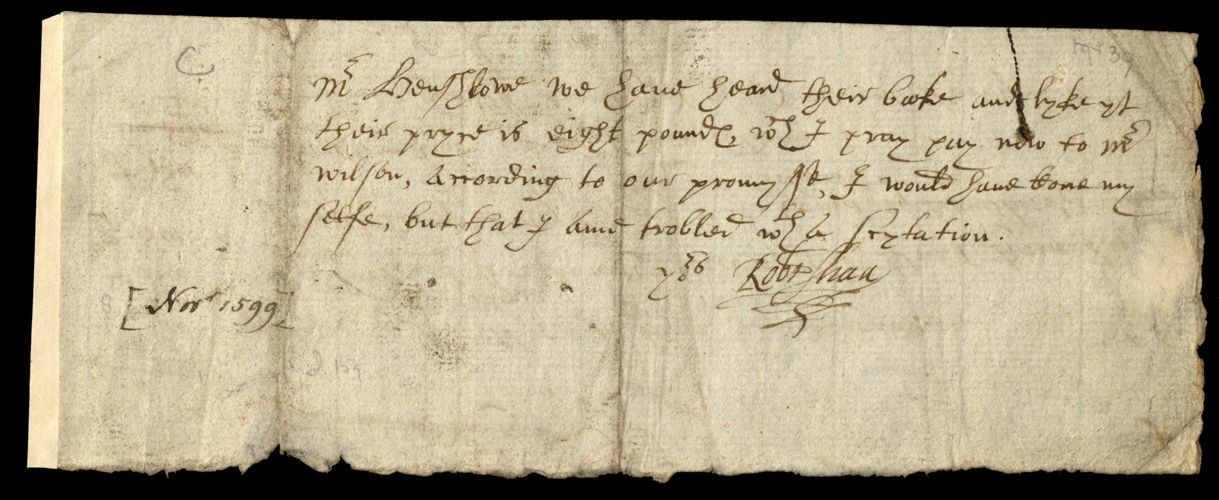 C
39
Mr Henshlowe we have heard their booke and lyke yt
their pryce is eight pounds, wch I pray pay now to mr
wilson, according to our promysse, I would have come my
selfe, but that I ame trobled wth a scytation.
yors Robt Shaa
[Novr 1599]